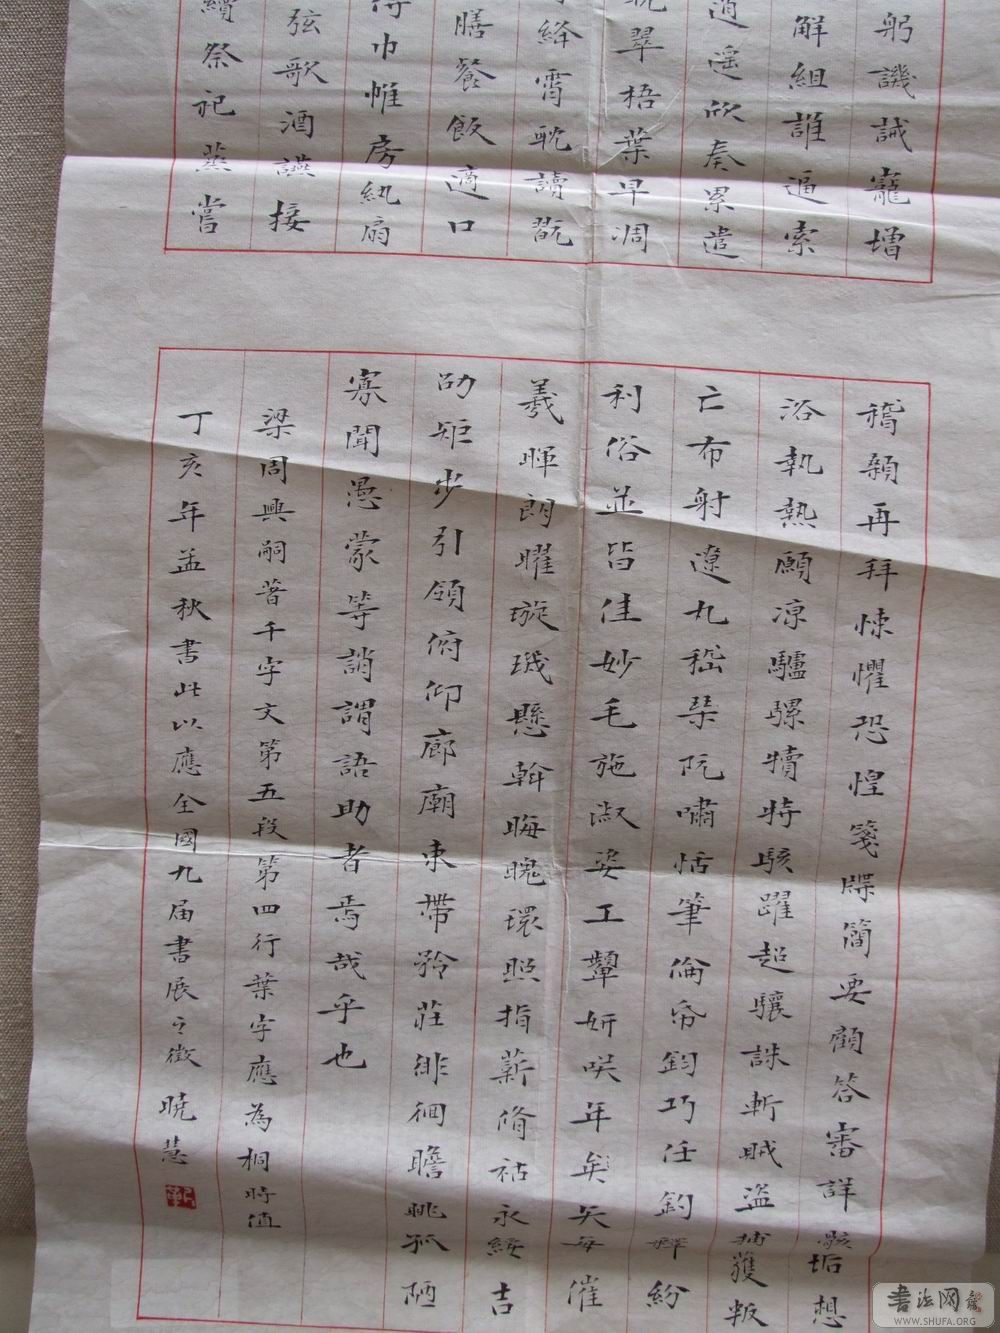 躬譏誡寵增
解組誰逼索
逍遙欣奏累遣
翠梧葉早凋
絳霄耽讀翫
膳餐飯適口
侍巾帷房紈扇
弦歌酒讌接
續祭祀蒸嘗
稽顙再拜悚懼恐惶箋牒簡要顧答審詳骸垢想
浴執熱願涼驢騾犢特駭躍超驤誅斬賊盜捕獲叛
亡布射遼丸嵇琴阮嘯恬筆倫帋鈞巧任釣釋紛
利俗並皆佳妙毛施淑姿工顰妍咲年矣矢每催
羲暉朗曜璇璣懸斡晦魄環照指薪脩祜永綏吉
劭矩步引領俯仰廊廟束帶矜莊徘徊瞻眺孤陋
寡聞愚蒙等誚謂語助者焉哉乎也
梁周興嗣著千字文第五段第四行葉字應為桐時值
丁亥年孟秋書此以應全國九届書展之徵 曉慧
书法网
WWW.SHUFA.ORG